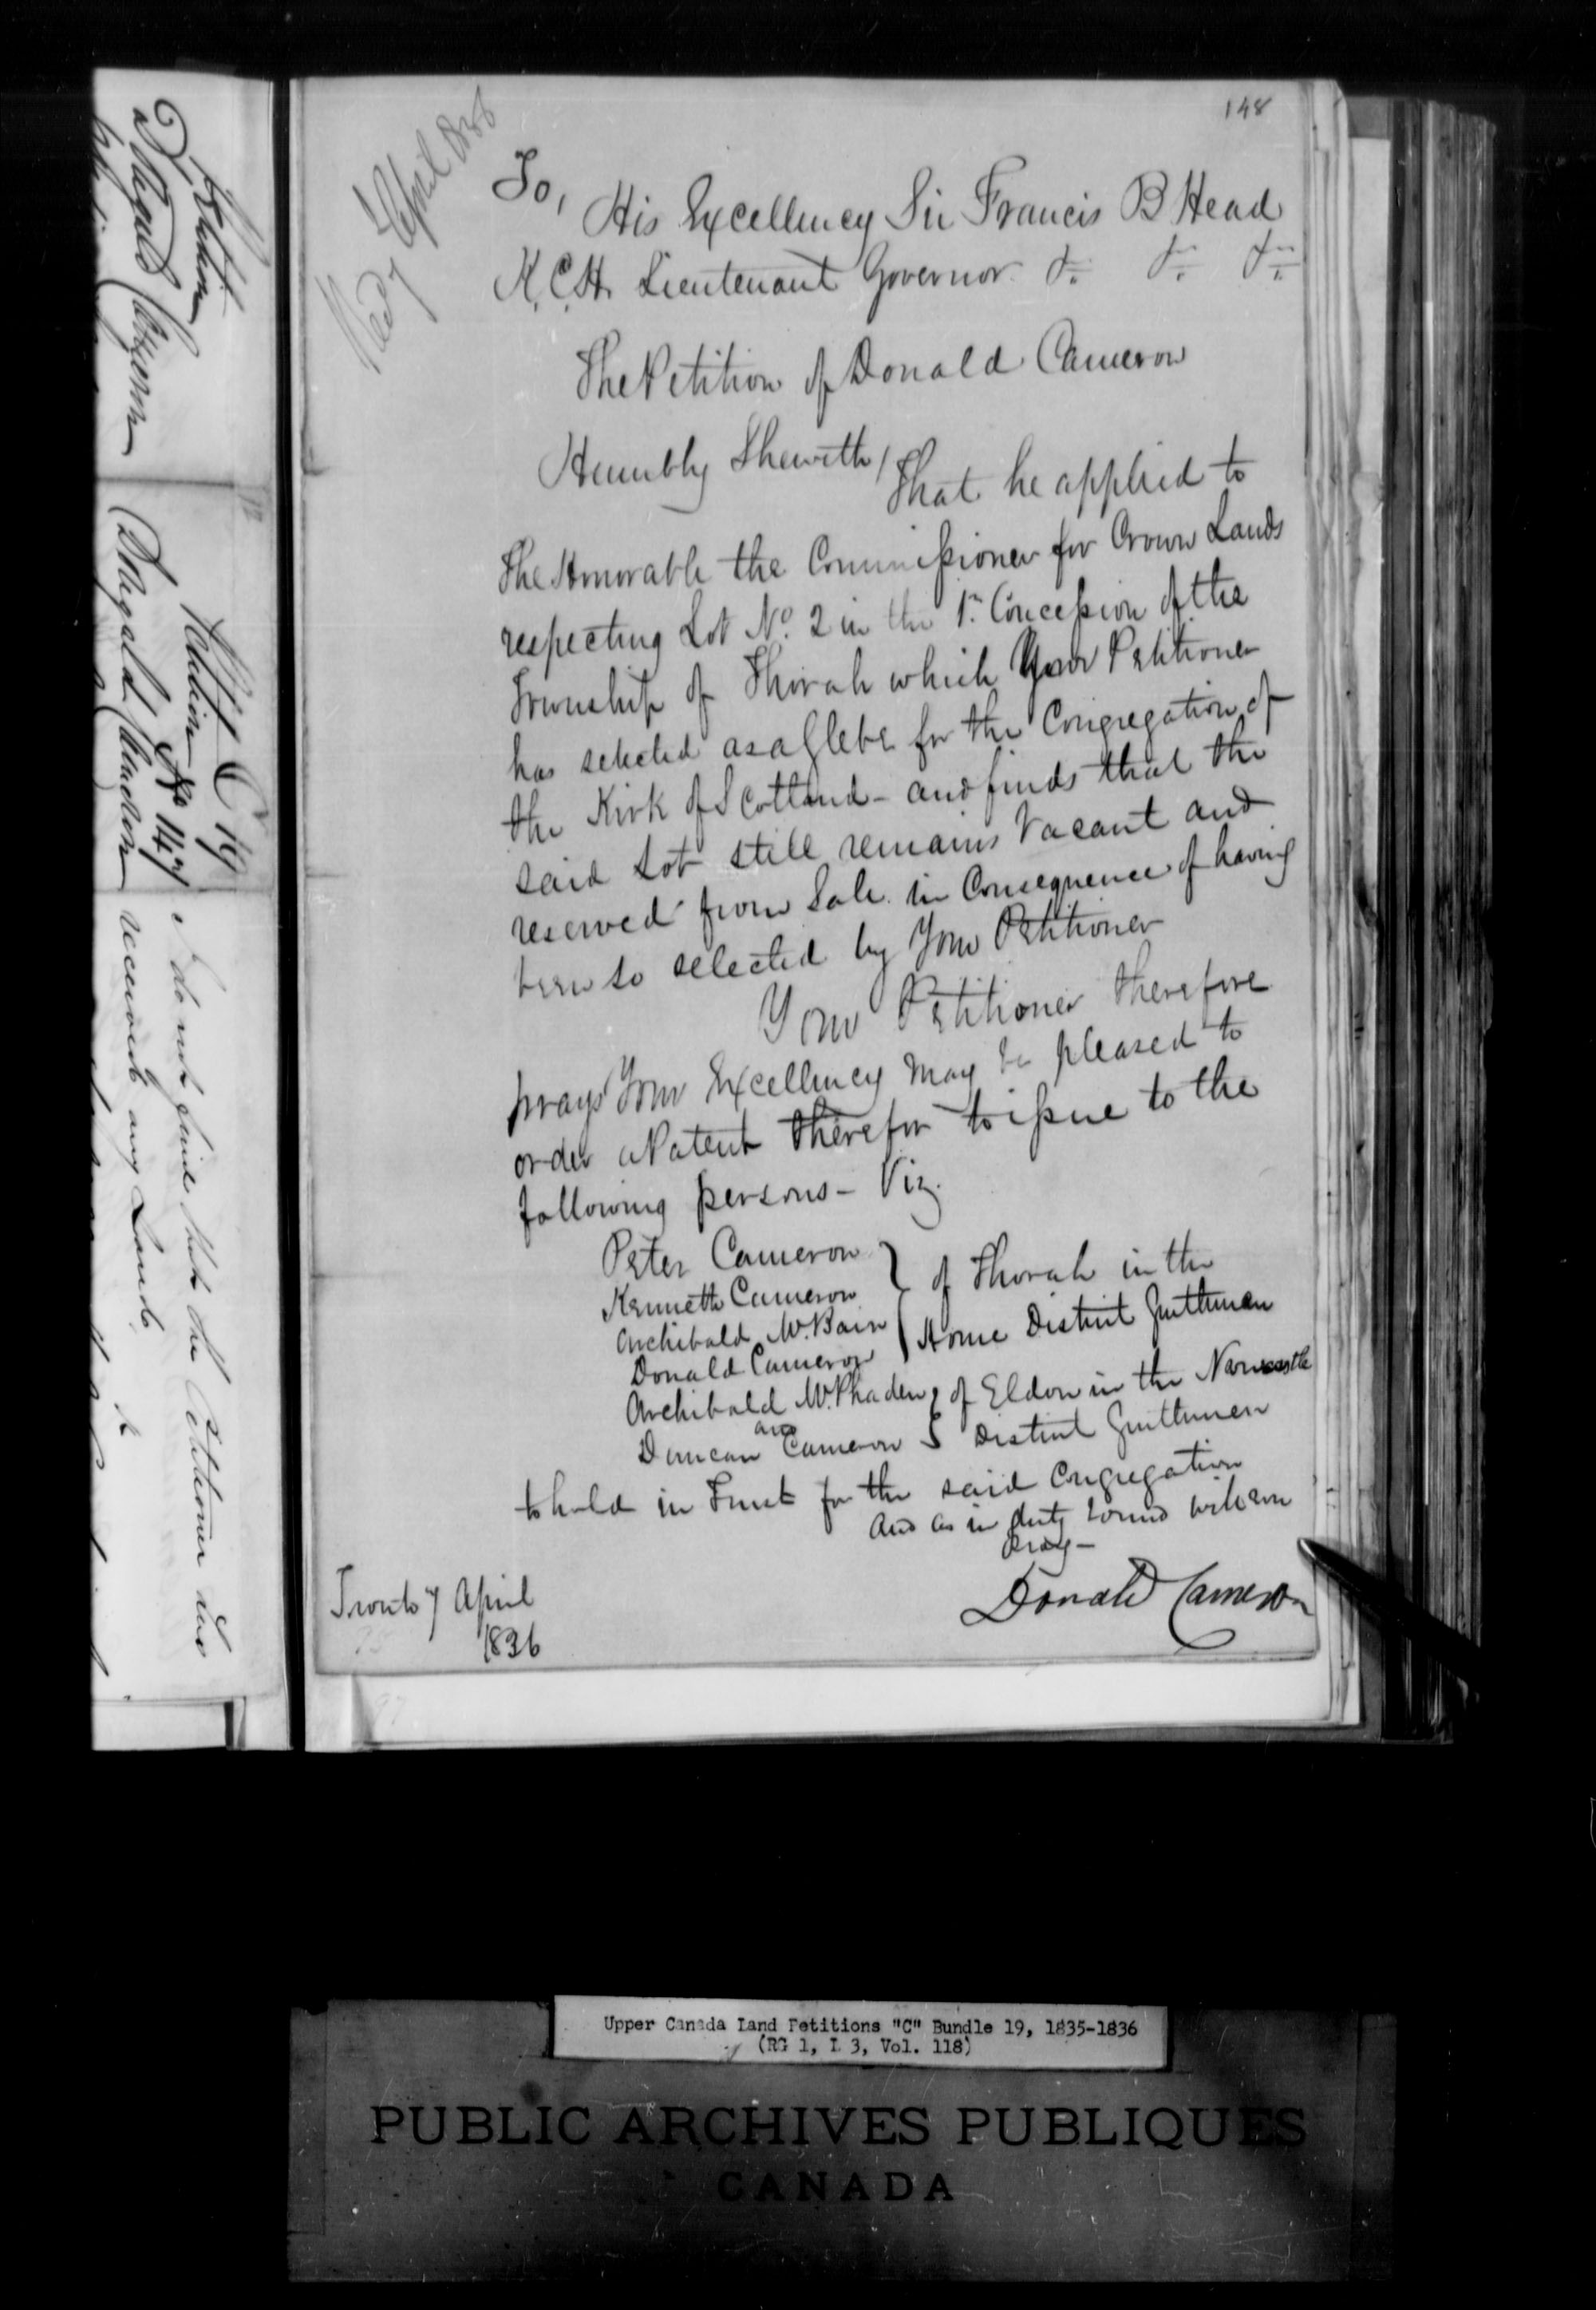 148
Recd 7 April 1836
To,
His Excellency Sir Francis B Head
K.C.H. Lieutenant Governor &c &c &c
The Petition of Donald Cameron
Humbly Sheweth/
That he applied to
The Honorable the Commissioner for Crown Lands
respecting Lot No. 2 in the 1st Concession of the
Township of Thorah which Your Petitioner
has selected as a Glebe for the Congregation of
the Kirk of Scotland - and finds that the
said Lot still remains Vacant and
reserved from Sale in Consequence of having
been so selected by Your Petitioner
Your Petitioner therefore
prays Your Excellency may be pleased to
order a Patent therefor to issue to the
following persons - Viz.
Peter Cameron
Kenneth Cameron } of Thorah in the
Archibald McBain } Home District Gentlemen
Donald Cameron
Archibald McPhaden } of Eldon in the Newcastle
and
Duncan Cameron } District Gentlemen
to hold in Trust for the said Congregation
And as in duty bound will ever
Pray -
Donald Cameron
Toronto 7 April
1836
Petition
Dugald Cameron
C 19
Petition No 147
Dugald Cameron
I do not find that the Petitioner has
received any Lands
Upper Canada Land Petitions "C" Bundle 19, 1835-1836
(RG 1, L 3, Vol. 118)
PUBLIC ARCHIVES PUBLIQUES
CANADA